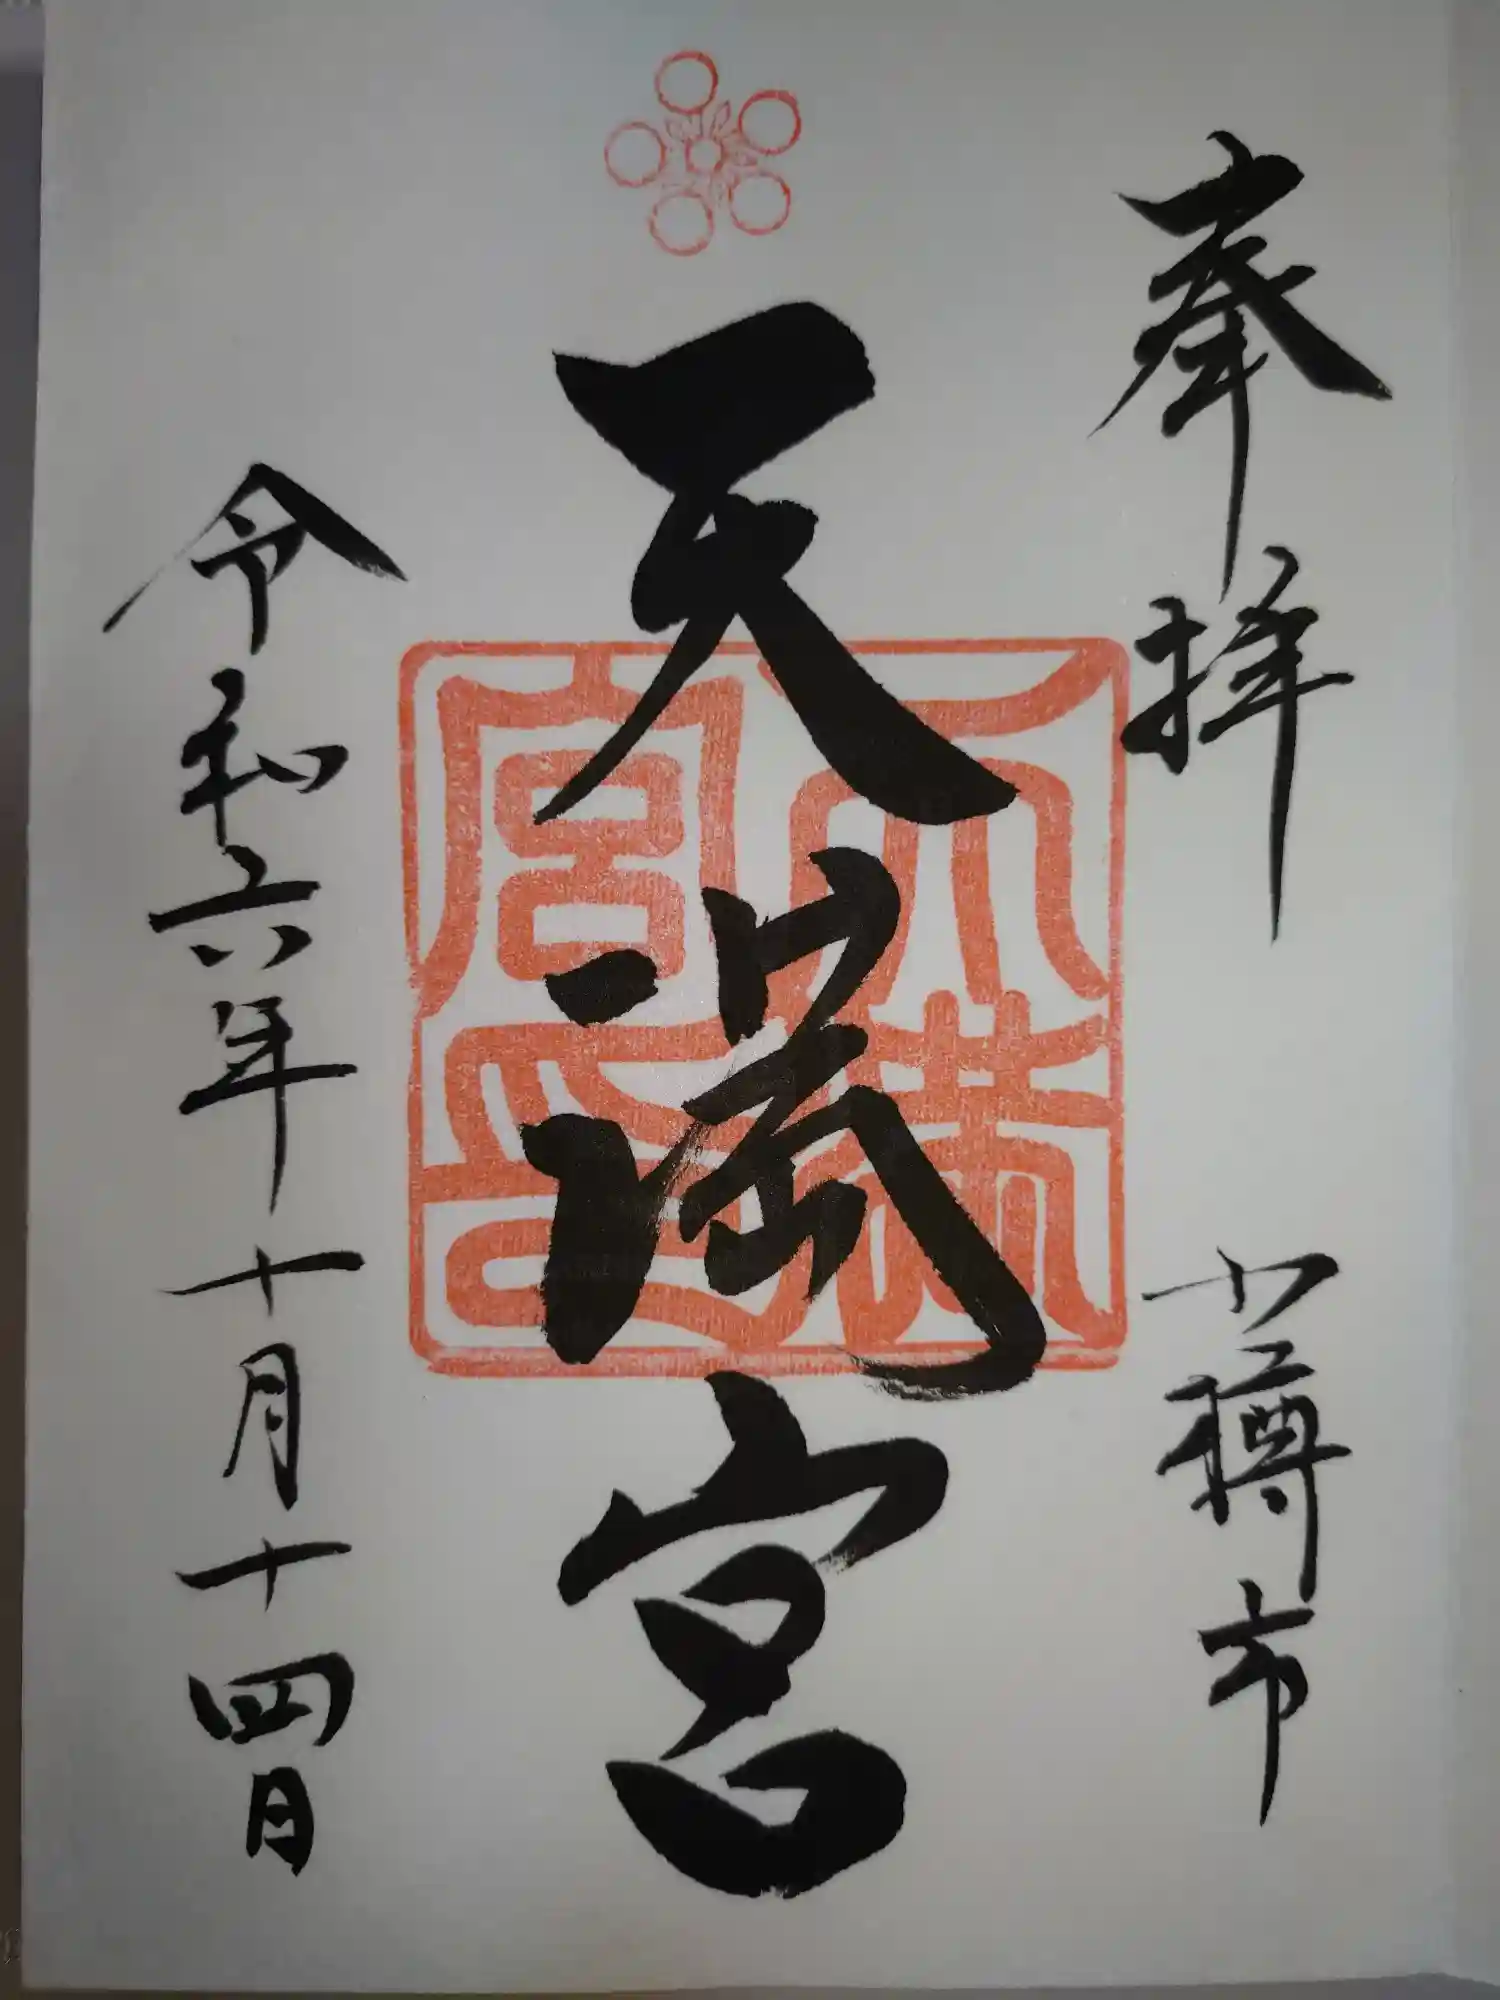 奉拝　小樽市
天満宮
天満宮印
令和六年十月十四日